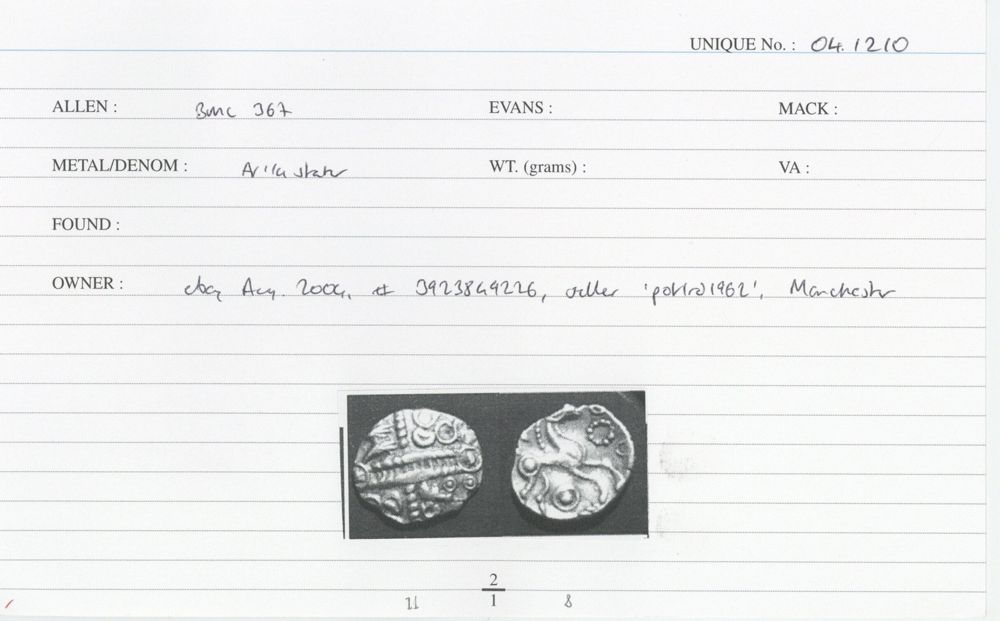 UNIQUE No. : 04.1210
ALLEN : BMC 367 EVANS : MACK :
METAL/DENOM : AV 1/4 stater WT. (grams) : VA :
FOUND :
OWNER : ebay Aug. 2004, # 3923849226, seller Manchester
2
21 1 8